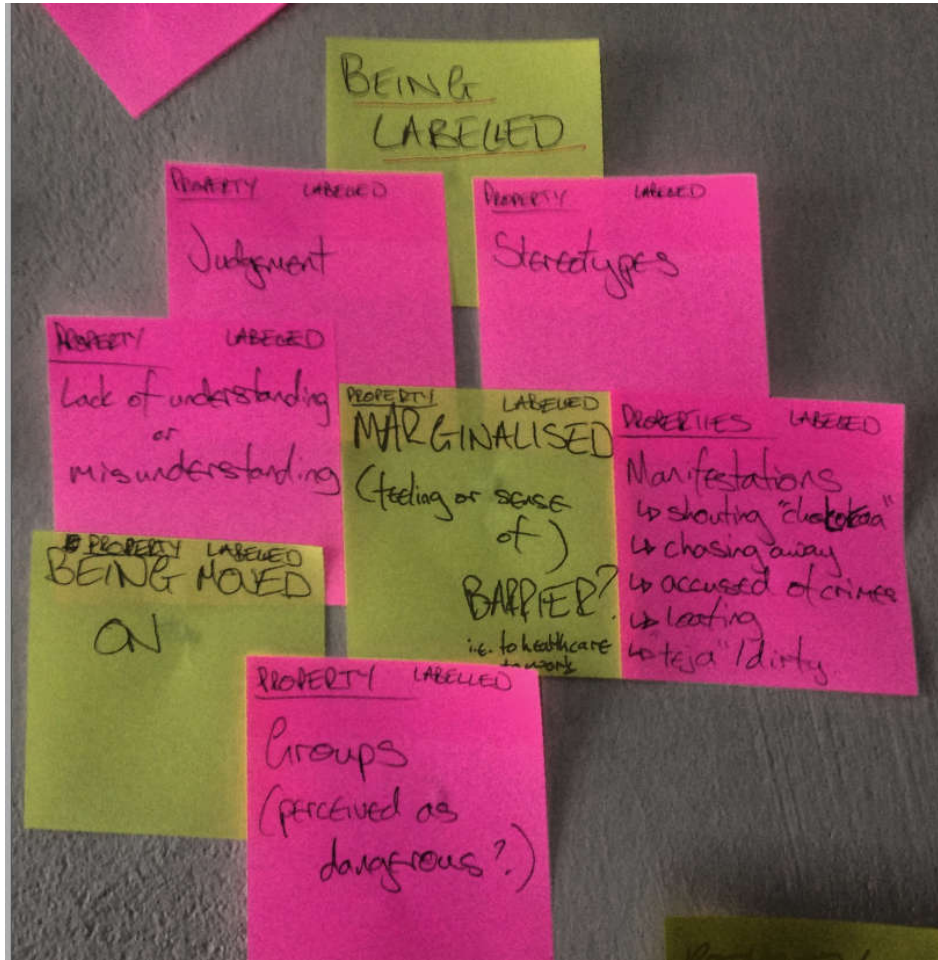 BEING
LABELLED
PROPERTY LABELED
Judgment
PROPERTY LABELED
Stereotypes
PROPERTY LABELED
Lack of understanding
or
misunderstanding
PROPERTY LABELED
MARGINALISED
(feeling or sense
of)
BARRIER?
i.e. to healthcare
to work
PROPERTIES LABELED
Manifestations
↳ shouting "chokoraa"
↳ chasing away
↳ accused of crimes
↳
↳ "teja"/dirty
PROPERTY LABELED
BEING MOVED
ON
PROPERTY LABELLED
Groups
(perceived as
dangerous?)